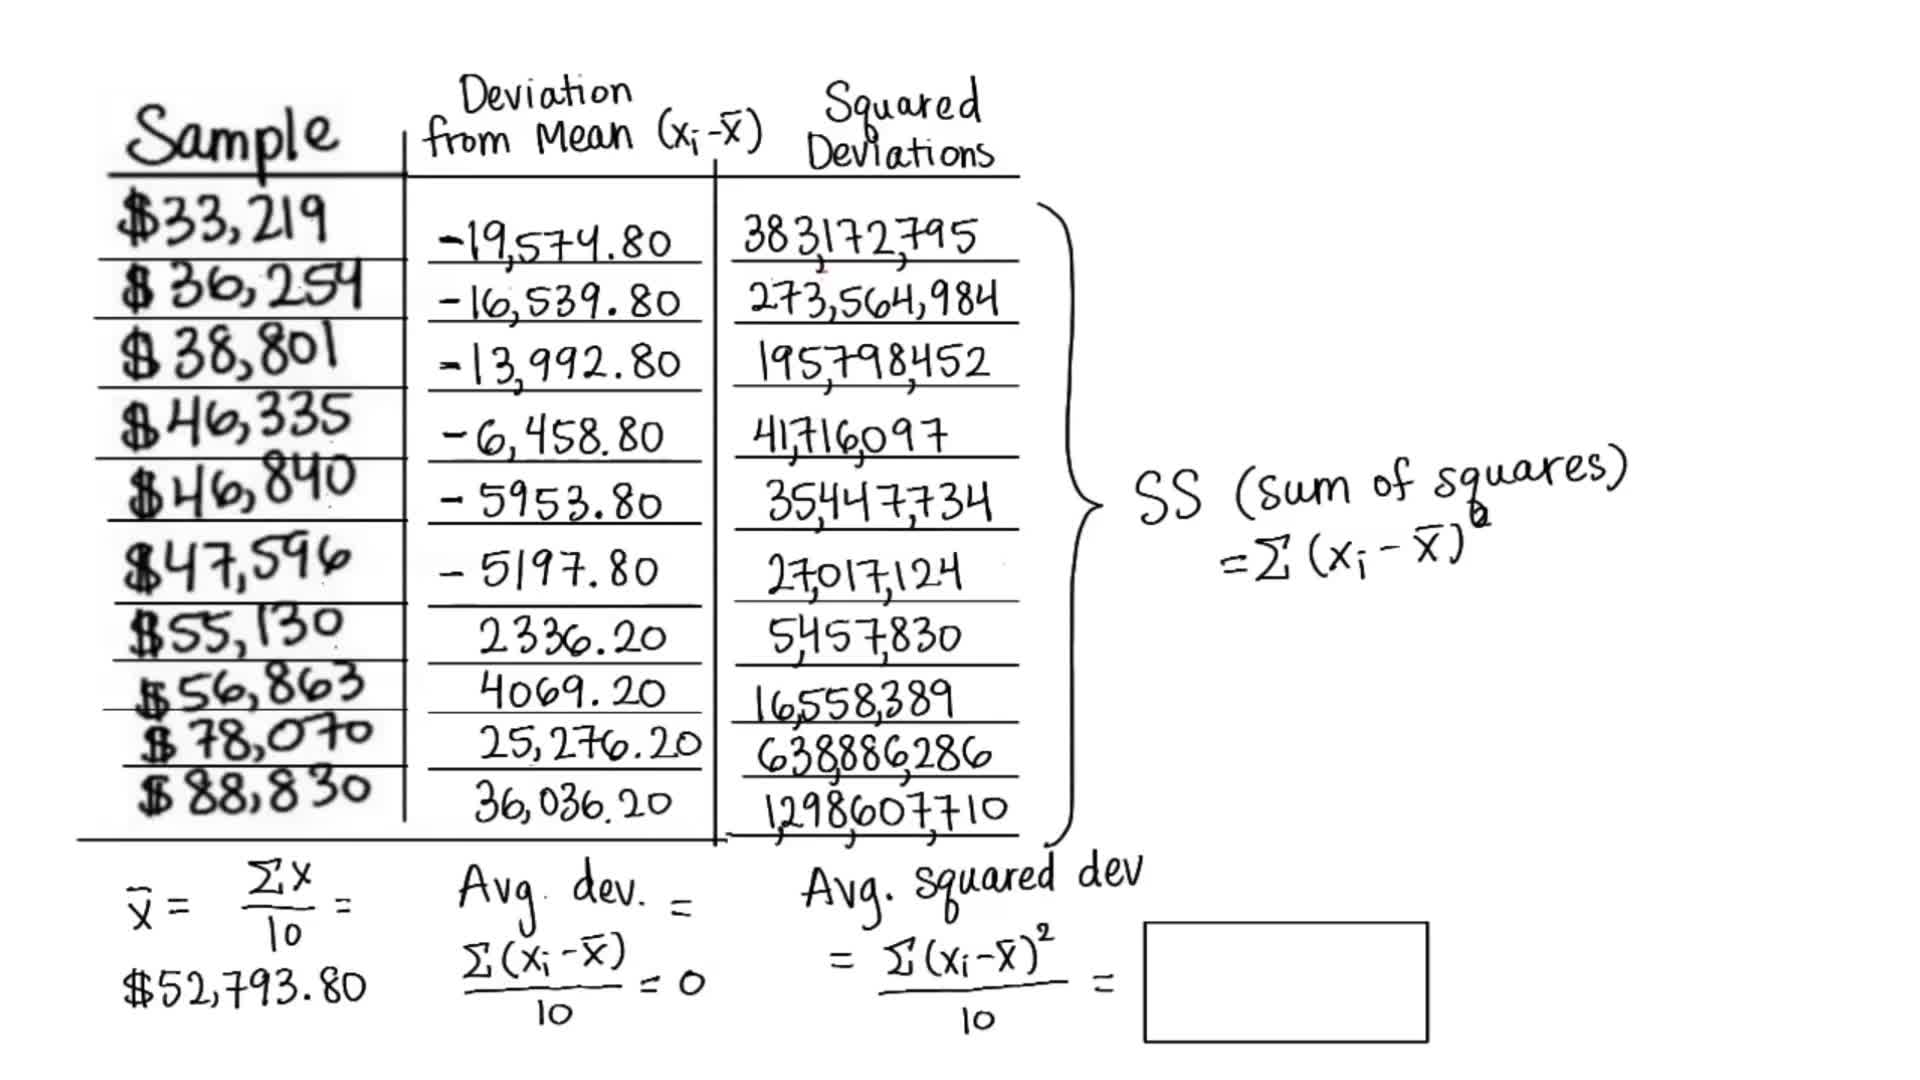 Sample
Deviation
from Mean (xᵢ-x̄)
Squared
Deviations
$33,219
-19,574.80
383,172,795
$36,254
-16,539.80
273,564,984
$38,801
-13,992.80
195,798,452
$46,335
-6,458.80
41,716,097
$46,840
-5953.80
35,447,734
$47,596
-5197.80
27,017,124
$55,130
2336.20
5,457,830
$56,863
4069.20
16,558,389
$78,070
25,276.20
638,886,286
$88,830
36,036.20
1,298,607,710
SS (sum of squares)
=Σ(xᵢ-x̄)²
x̄ = Σx/10 =
$52,793.80
Avg. dev. =
Σ(xᵢ-x̄)/10 = 0
Avg. squared dev
= Σ(xᵢ-x̄)²/10 =